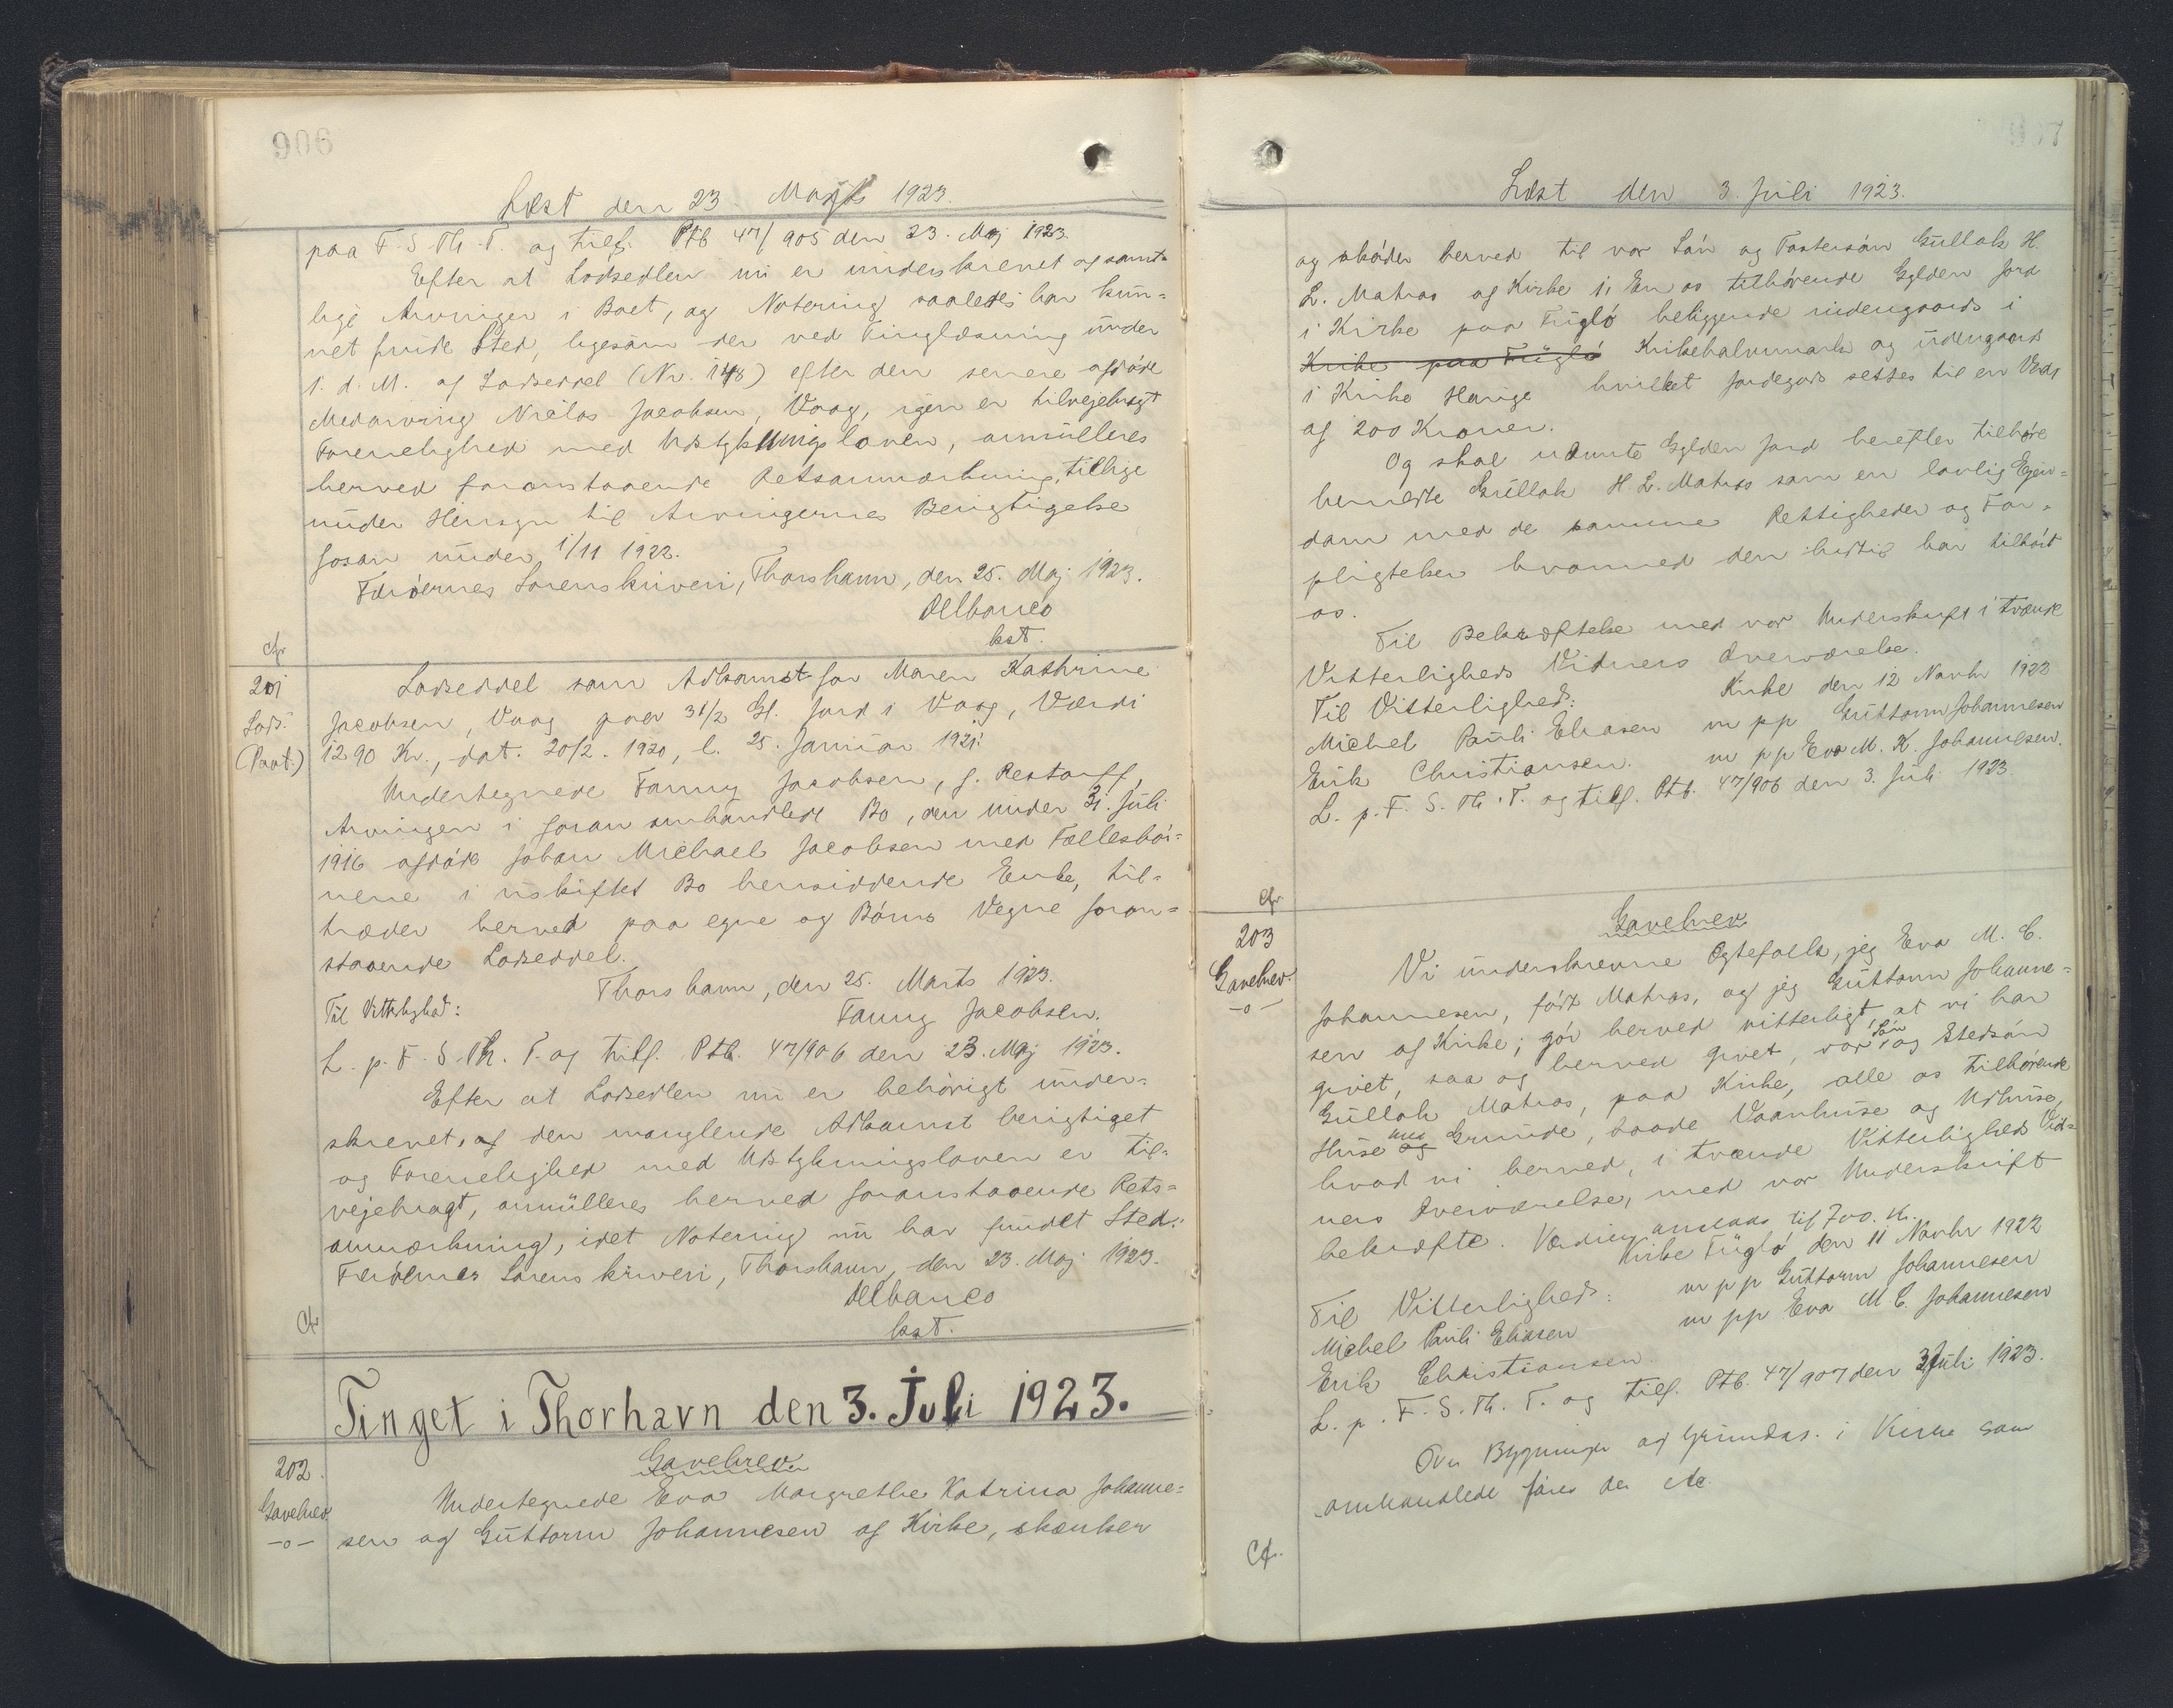 906
Læst den 23. Maj 1923.
paa F. S. Th. T. og tilf. Ptb 47/905 den 23. Maj 1923.
Efter at Lodsedlen nu er underskrevet af samt-
lige Arvinger i Boet, og Notering saaledes har kun-
net finde Sted, ligesom der ved Tinglæsning under
1. d. M. af Lodseddel (Nr. 148) efter den senere afdøde
Medarving Niclas Jacobsen, Vaag, igen er tilvejebragt
Forenelighed med Udstykningsloven, annulleres
herved foranstaaende Retsanmærkning, tillige
under Hensyn til Arvingernes Berigtigelse
foran under 1/11 1922.
Færøernes Sorenskriveri, Thorshavn, den 25. Maj 1923.
Delbanco
kst.
Cfr
201
Lods.
(Paat.)
Lodseddel som Adkomst for Maren Kathrine
Jacobsen, Vaag paa 3 1/2 Gl. Jord i Vaag, Værdi
1290 Kr., dat. 20/2 - 1920, l. 25. Januar 1921.
Undertegnede Fanny Jacobsen, f. Restorff,
Arvingen i foran omhandlede Bo, den under 31. Juli
1916 afdøde Johan Michael Jacobsen med Fællesbør-
nene i uskiftet Bo hensiddende Enke, til-
træder herved paa egne og Børns Vegne foran-
staaende Lodseddel.
Thorshavn, den 25. Marts 1923.
Til Vitterlighed:
Fanny Jacobsen.
L. p. F. S. Th. T. og tilf. Ptb. 47/906 den 23. Maj 1923.
Efter at Lodsedlen nu er behørigt under-
skrevet, af den manglende Adkomst berigtiget
og Forenelighed med Udstykningsloven er til-
vejebragt, annulleres herved foranstaaende Rets-
anmærkning, idet Notering nu har fundet Sted.
Færøernes Sorenskriveri, Thorshavn, den 23. Maj 1923.
Delbanco
kst.
Cfr
Tinget i Thorhavn den 3. Juli 1923.
202.
Gavebrev
-o-
Gavebrev
Undertegnede Eva Margrethe Katrina Johanne-
sen og Guttorm Johannesen af Kirke, skænker
907
Læst den 3. Juli 1923.
og skøder herved til vor Søn og Fostersøn Gullak H.
L. Matras af Kirke 1, En os tilhørende Gylden Jord
i Kirke paa Fuglø beliggende indengaards i
Kirke paa Fuglø Kirkehalvmark og udengaards
i Kirke Hauge hvilket Jordegods sættes til en Værdi
af 200 Kroner.
Og skal nævnte Gylden Jord herefter tilhøre
bemeldte Gullak H L. Matras som en lovlig Ejen-
dom med de samme Rettigheder og For-
pligtelser hvormed den hidtil har tilhørt
os.
Til Bekræftelse med vor Underskrift i tvende
Vitterligheds Vidners Overværelse.
Kirke den 12 Novbr 1922
Til Vitterlighed:
Michel Pauli Eliasen m pp Guttorm Johannesen
Erik Christiansen. m pp Eva M. K. Johannesen.
L. p. F. S. Th. T. og tilf. Ptb. 47/906 den 3. Juli 1923.
Cfr
203
Gavebrev.
-o-
Gavebrev.
Vi underskrevne Ægtefolk, jeg Eva M. C.
Johannesen, født Matras, og jeg Guttorm Johanne-
sen af Kirke; gør herved vitterligt, at vi har
givet, saa og herved givet, vor Søn og Stedsøn
Gullak Matras, paa Kirke, alle os tilhørende
Huse og med Grunde, baade Vaanhuse og Udhuse,
hvad vi herved, i tvende Vitterligheds Vid-
ners Overværelse, med vor Underskrift
bekræfte. Værdien anslaas til 700. Kr.
Kirke Fuglø den 11 Novbr 1922
Til Vitterlighed: m pp Guttorm Johannesen
Michel Pauli Eliasen m pp Eva M C. Johannesen
Erik Christiansen
L. p. F. S. Th. T. og tilf. Ptb. 47/907 den 3 Juli 1923.
Over Bygninger og Grunde i Kirke som
omhandlede føres der
Cfr.